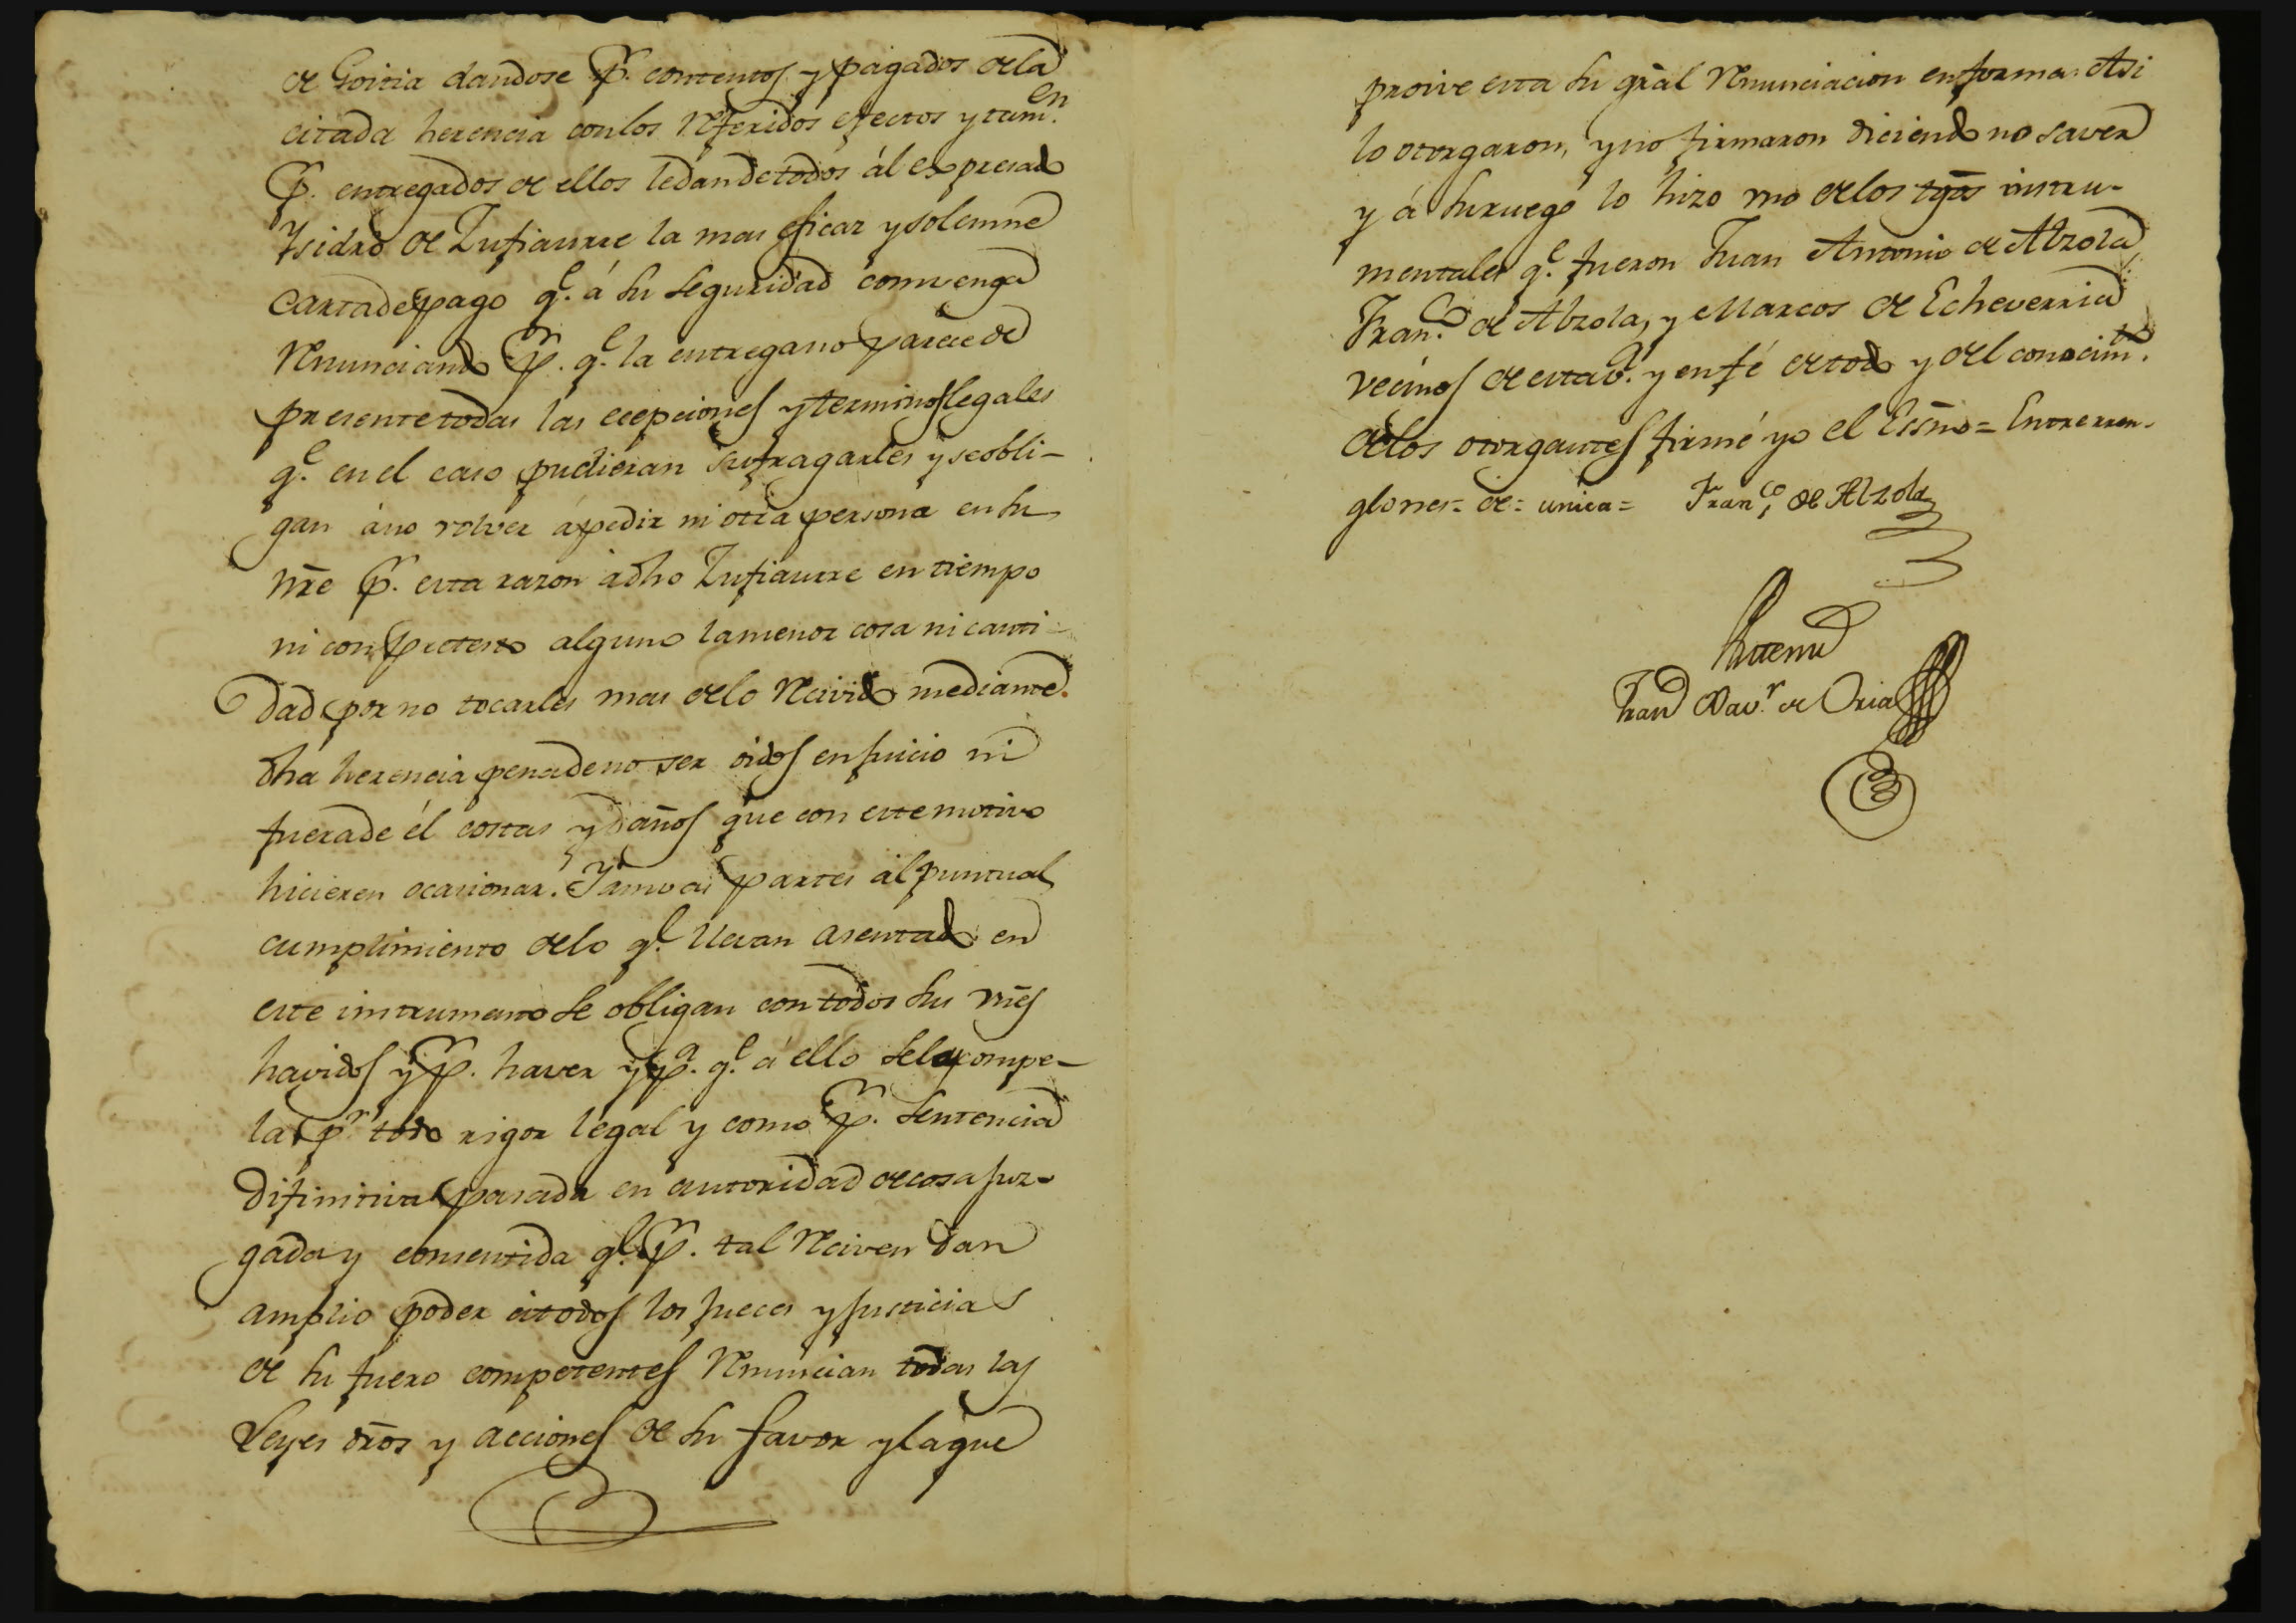 de Goitia dandose pr. contentos y pagados de la
citada herencia con los referidos efectos y tamen.
pr. entregados de ellos le dan de todos ál expresado
Ysidro de Zufiaurre la mas eficaz y solemne
carta de pago qe. á su seguridad convenga
renunciando pr. qe. la entrega no parece de
presente todas las ecepciones y terminos legales
qe. en el caso pudieran sufragarles y se obli-
gan áno volver ápedir ni otra persona en su
nre pr. esta razon adho Zufiaurre en tiempo
ni con pretexto alguno la menor cosa ni canti-
dad por no tocarles mas de lo recivido mediante
dha herencia pena de no ser oidos en juicio ni
fuera de él costas y daños que con este motivo
hicieren ocasionar. Y amvas partes al puntual
cumplimiento de lo qe. llevan asentado en
este instrumento se obligan con todos sus vnes
havidos y pr. haver y pa. qe. a ello seles compe-
la pr. todo rigor legal y como pr. sentencia
difinitiva pasada en autoridad de cosa juz-
gada y consentida qe. pr. tal reciven dan
amplio poder a todos los jueces y justicias
de su fuero competentes renuncian todas las
Leyes dros y acciones de su favor y la que
proive esta su gral renunciacion en forma. Asi
lo otorgaron, y no firmaron diciendo no saver
y á su ruego lo hizo uno de los tgos instru-
mentales qe. fueron Juan Antonio de Alzola,
Franco. de Alzola, y Marcos de Echeverria
vecinos de esta va. y en fé de todo y del conocimto.
de los otorgantes firmé yo el Essno = Entre ren-
glones = de = unica = Franco. de Alzola
Ante mi
Juan Bavr. de Oria